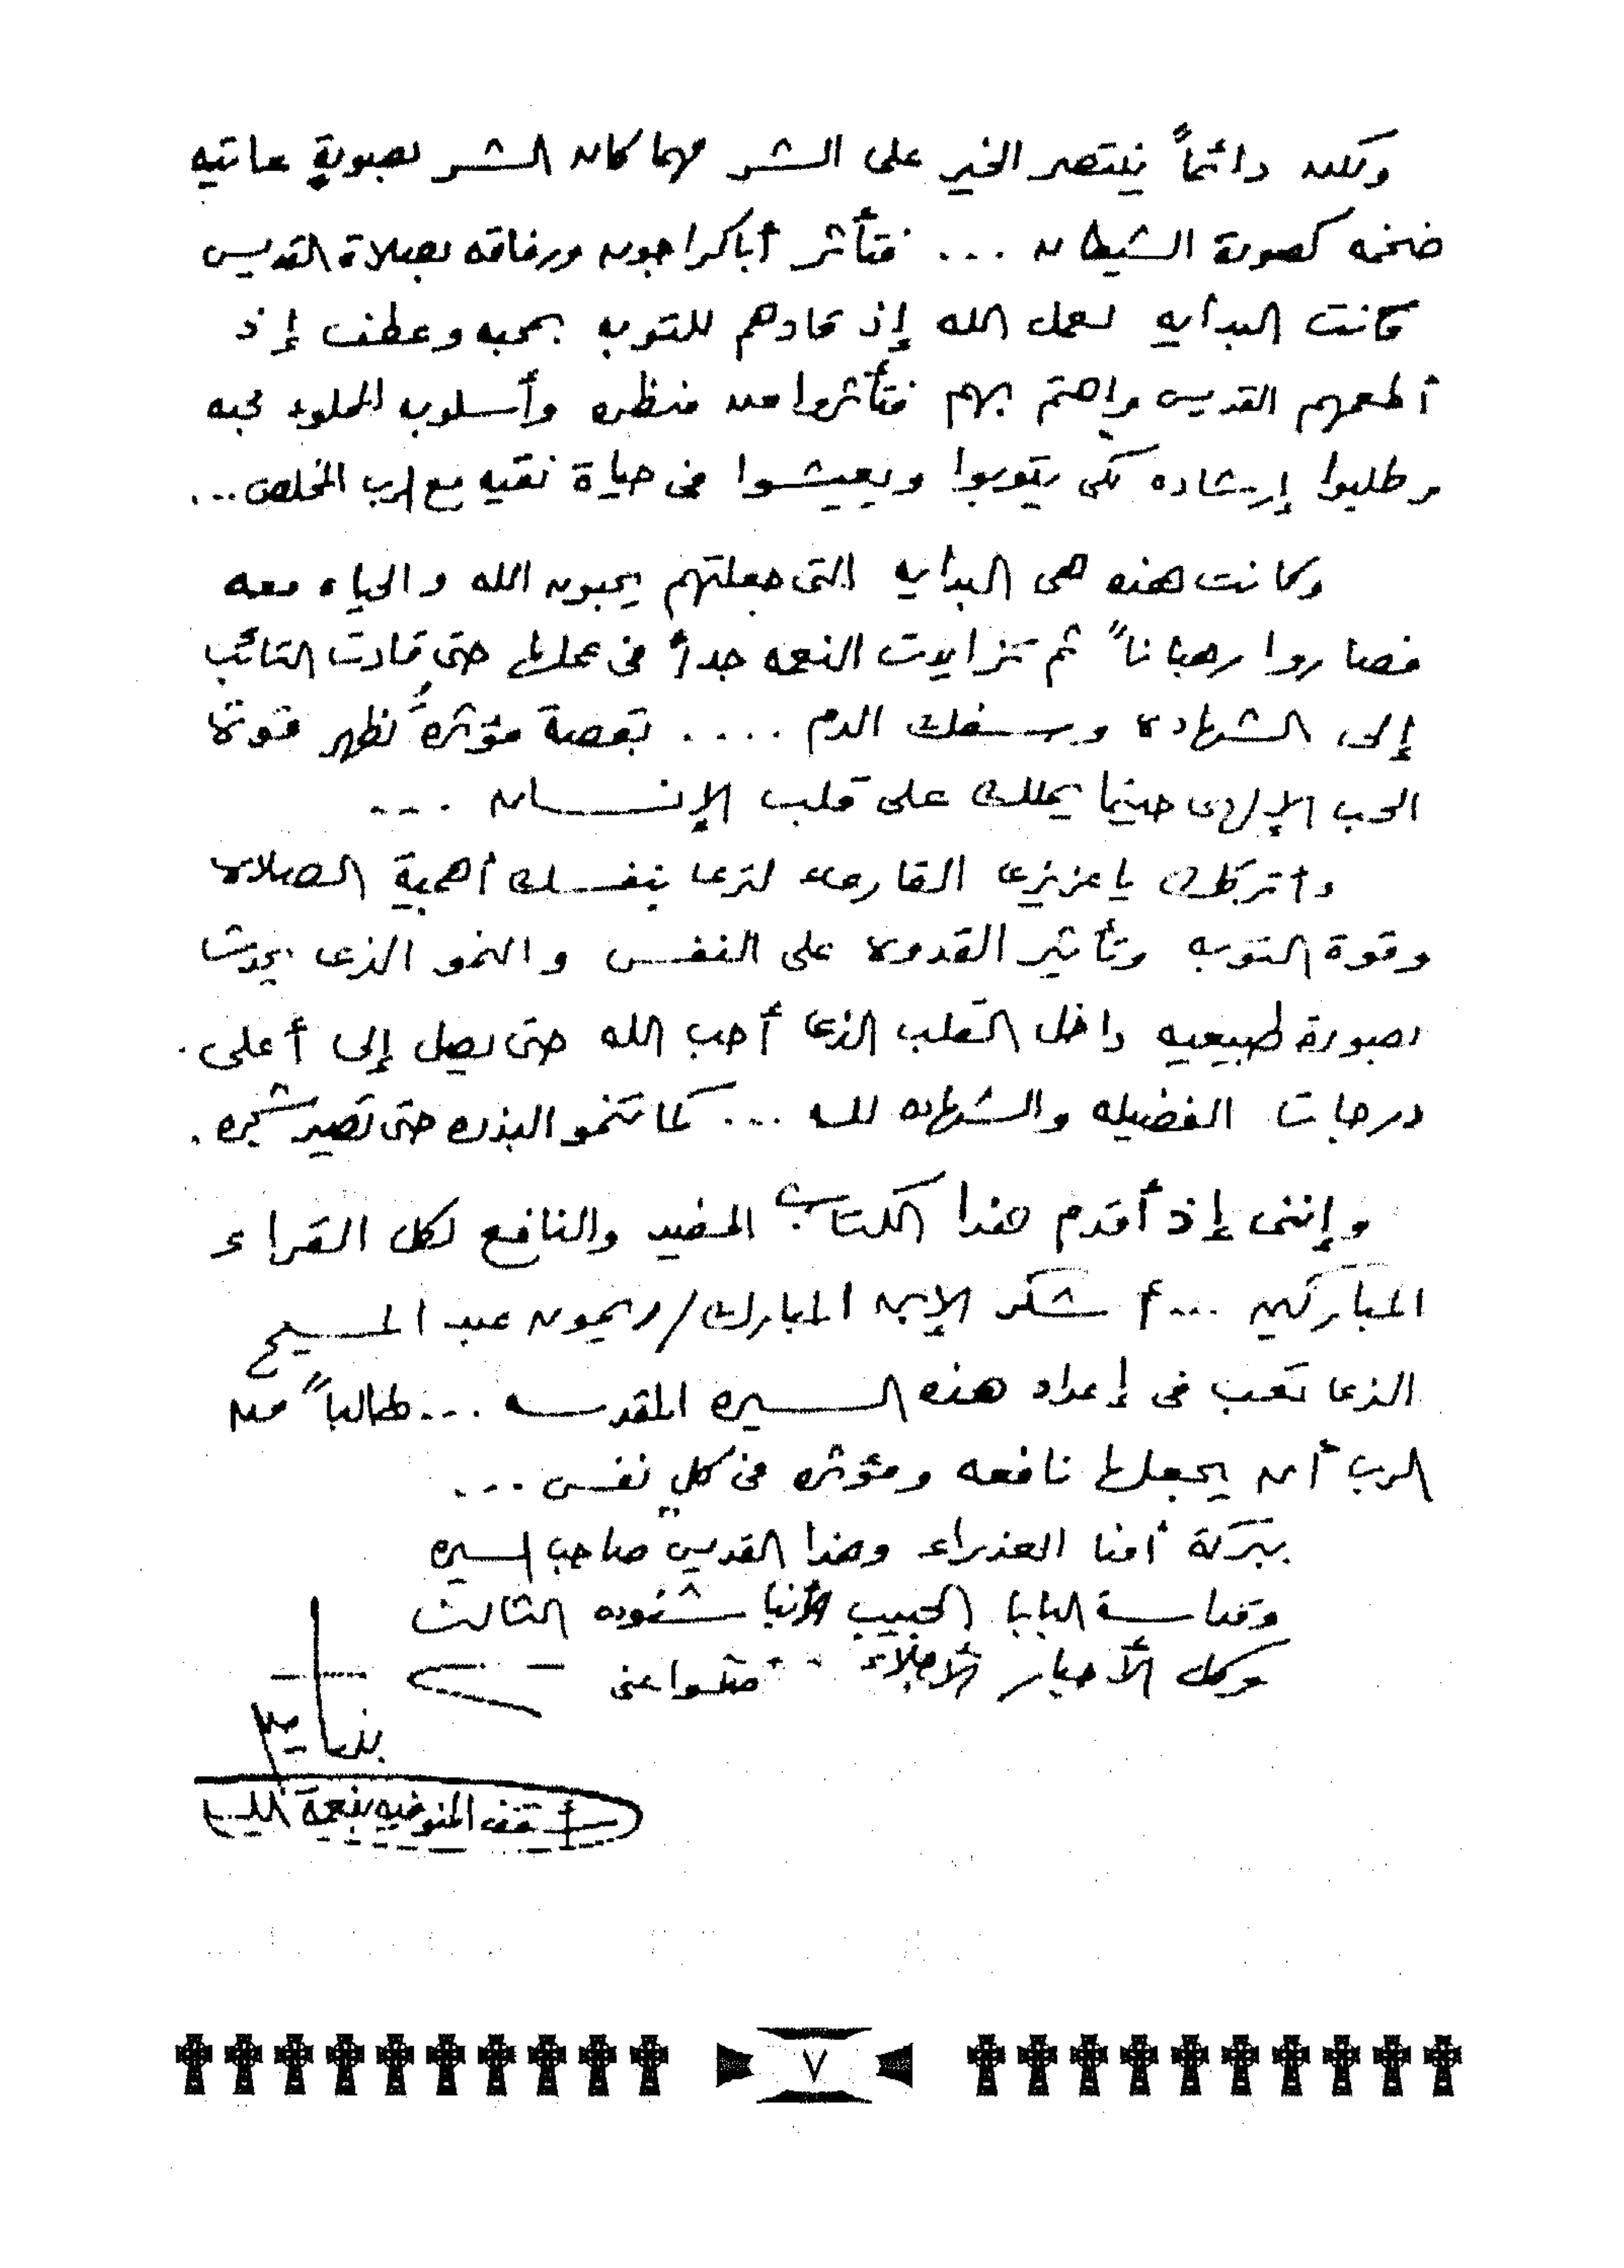 ولكن دائماً ينتصر الخير على الشر مهما كان الشر بصورة عاتيه
ضخمه كصورة الشيطان ... فتأثر أباكراجون ورفاقه بصلاة القديس
كانت البدايه لعمل الله إذ قادهم للتوبه بمحبه وعطف إذ
أطعمهم القديس واهتم بهم فتأثروا من منظره وأسلوبه المملوء محبه
وطلبوا إرشاده لكى يتوبوا ويعيشوا فى حياة نقيه مع الرب المخلص ...
وكانت هذه هى البدايه التى جعلتهم يحبون الله والحياه معه
فصاروا رهباناً ثم تزايدت النعمه جداً فى عملها حتى قادت التائب
إلى الشهاده وسفك الدم .... بقصة مؤثره تظهر قوة
الحب الإلهى حينما يملك على قلب الإنسان ...
واتركك يا عزيزى القارىء لترى بنفسك أهمية الصلاه
وقوة التوبه وتأثير القدوه على النفس والنمو الذى يحدث
بصورة طبيعيه داخل القلب الذى أحب الله حتى يصل إلى أعلى
درجات الفضيله والشهاده لله ... كما تنمو البذره حتى تصير شجره .
وإننى إذ أقدم هذا الكتاب المفيد والنافع لكل القراء
المباركين ... أشكر الإبن المبارك / ريمون عبد المسيح
الذى تعب فى إعداد هذه السيره المقدسه ... طالباً من
الرب أن يجعلها نافعه ومؤثره فى كل نفس ...
ببركة أمنا العذراء وهذا القديس صاحب السيره
وقداسة البابا الحبيب الأنبا شنوده الثالث
وكل الأحبار الأجلاء صلوا عنى
بنيامين
أسقف المنوفيه بنعمة الله
٧